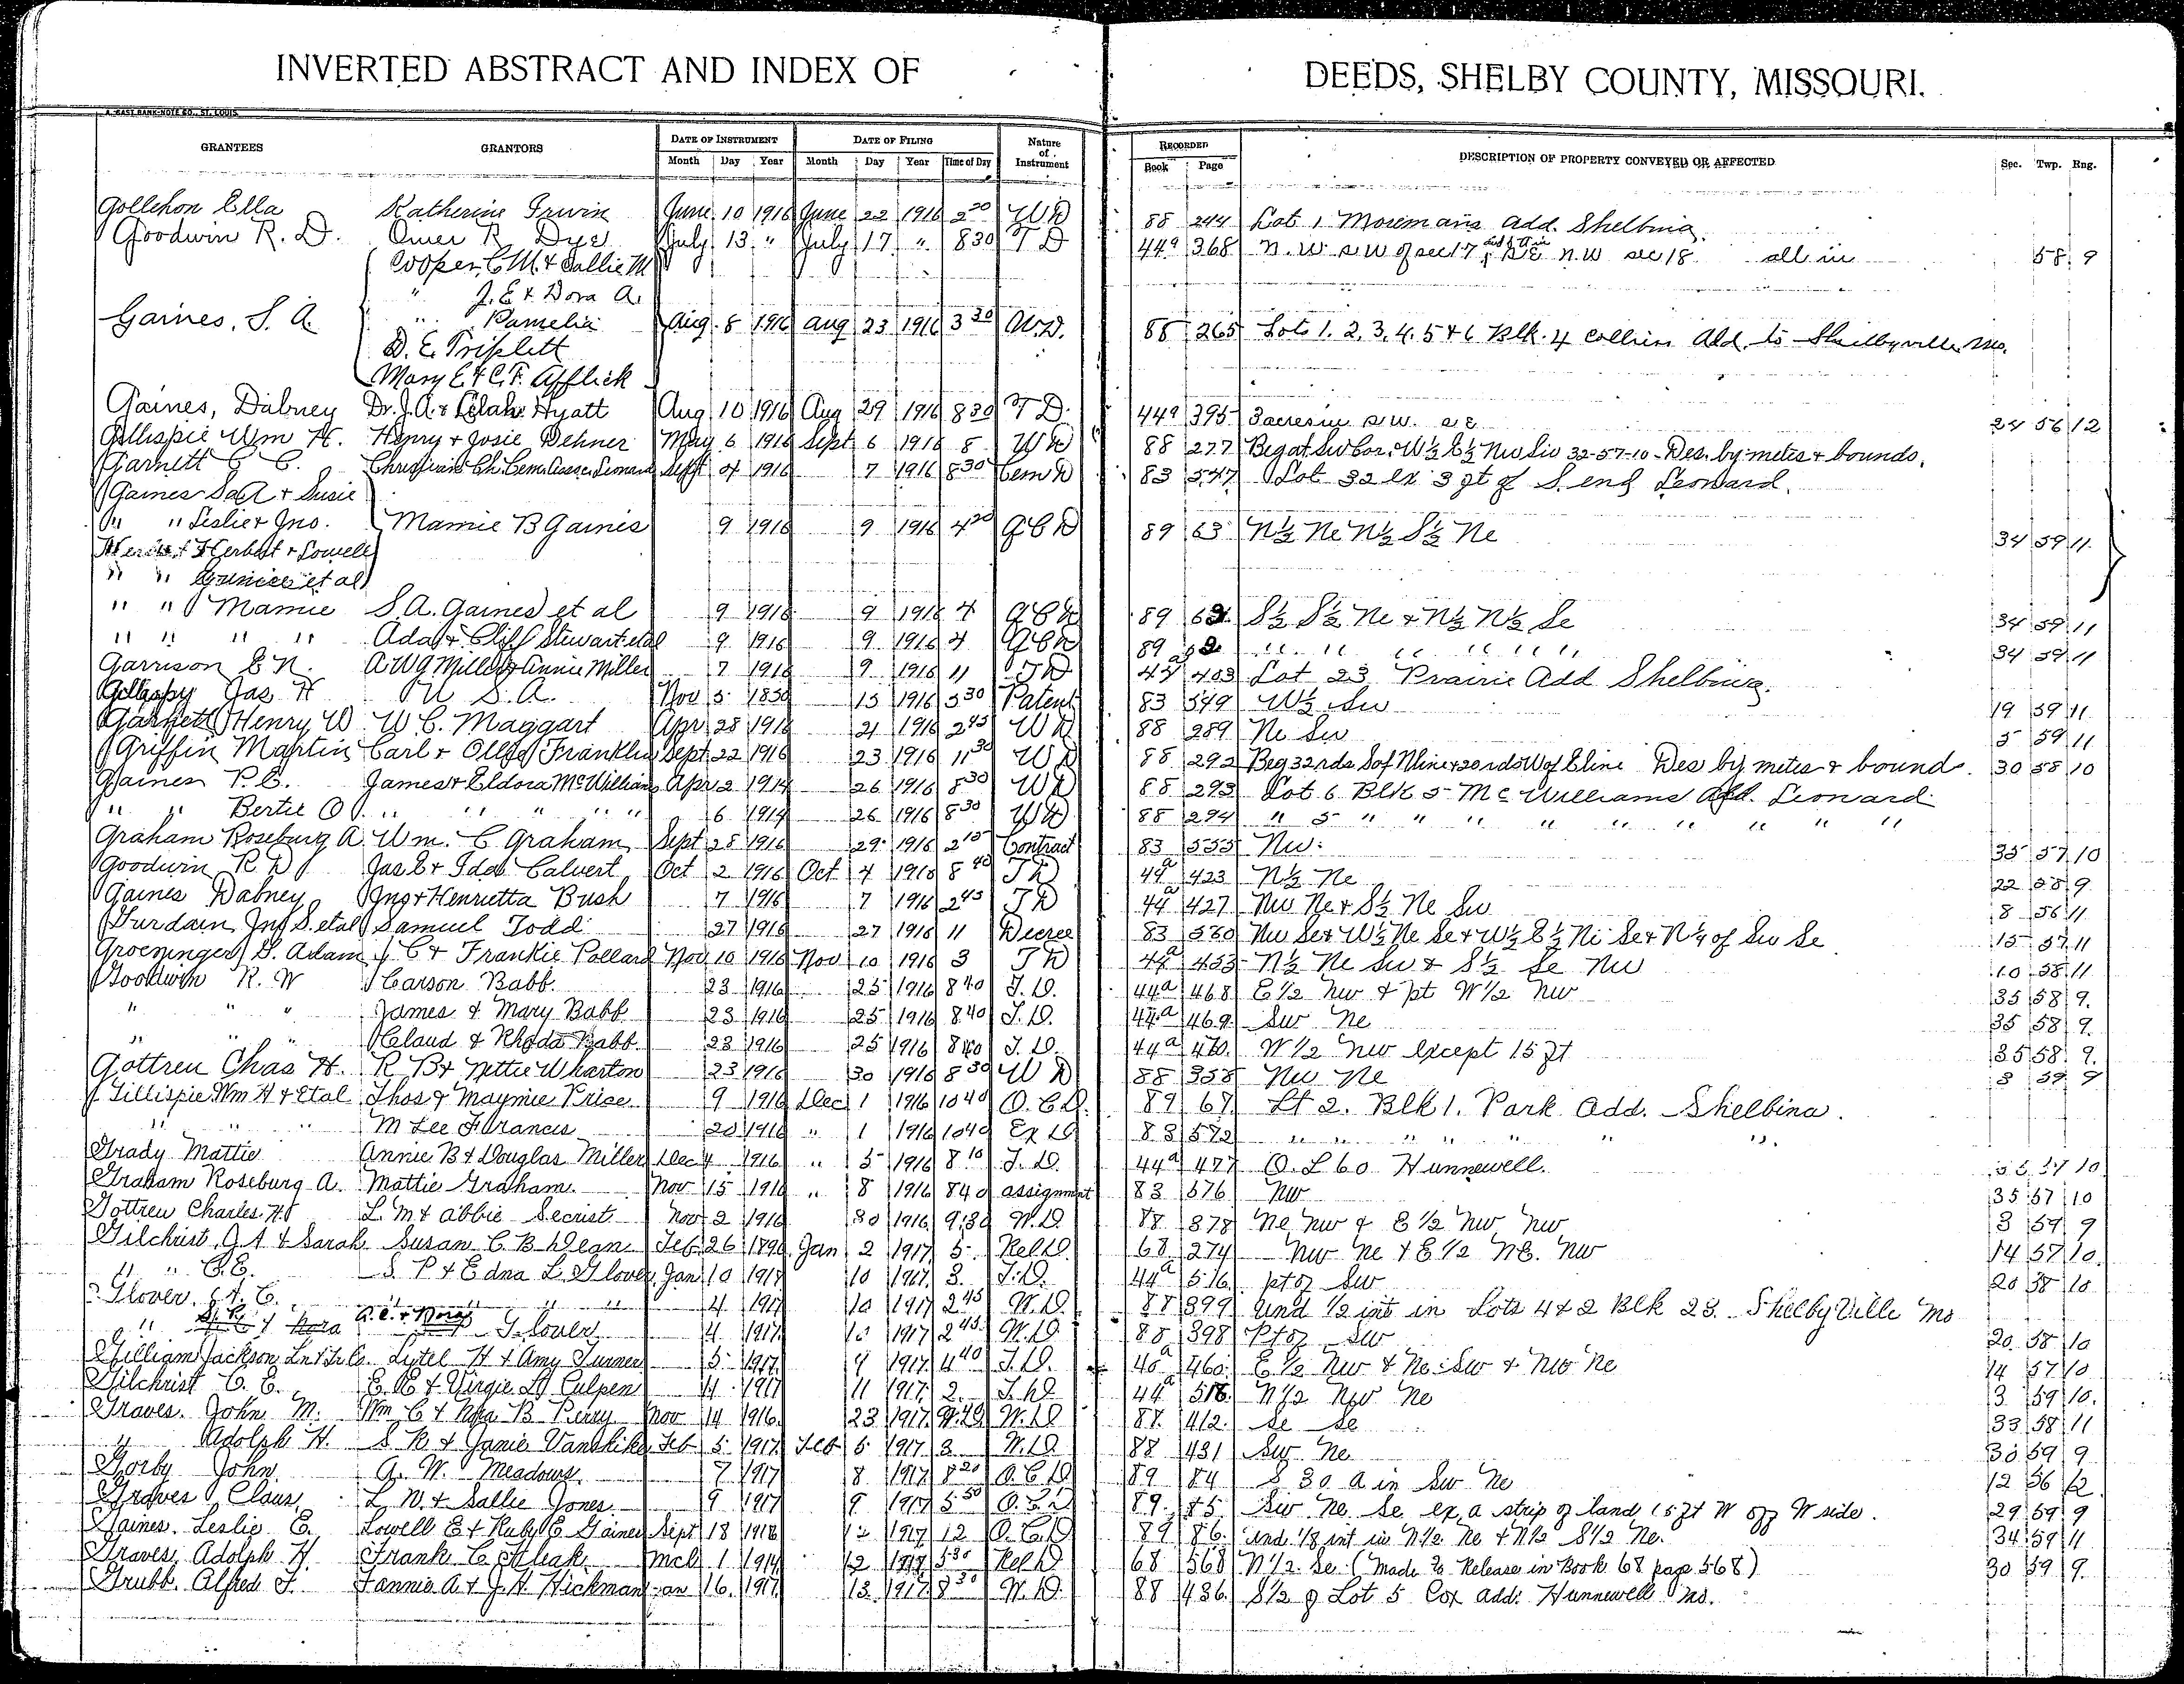 INVERTED ABSTRACT AND INDEX OF DEEDS, SHELBY COUNTY, MISSOURI.
A. GAST BANK NOTE CO., ST. LOUIS.
GRANTEES GRANTORS DATE OF INSTRUMENT DATE OF FILING Nature of Instrument RECORDED DESCRIPTION OF PROPERTY CONVEYED OR AFFECTED Sec. Twp. Rng.
Month Day Year Month Day Year Time of Day Book Page
Gollehon Ella Katherine Irwin June 10 1916 June 22 1916 2 20 W D 88 244 Lot 1 Moreman's Add. Shelbina.
Goodwin R. D. Omer R Dye July 13 " July 17 " 830 T D 44a 368 N.W. S W of sec 17 N.W sec 18 all in 58 9
Cooper, C. M. & Sallie M
" J. E & Dora A.
Gaines, S. A. " Pamelia Aug. 8 1916 Aug 23 1916 3 20 W.D. 88 265 Lots 1, 2, 3, 4, 5 & 6 Blk. 4 Collins Add. to Shelbyville Mo.
D. E. Triplett
Mary E & C. F. Afflick
Gaines, Dabney Dr. J. A. & Hyatt Aug 10 1916 Aug 29 1916 830 T D. 44a 395 3 acres in S.W. S E 24 56 12
Gillispie Wm H. Henry & Josie Dehner May 6 1916 Sept 6 1916 8 W D 88 277 Beg at Sw Cor. W½ E½ Nw Sw 32-57-10 - Des. by metes & bounds.
Garnett C. C. Christian Ch. Cem. Assn Leonard Sept 4 1916 7 1916 830 Cem D 83 547 Lot 32 ex 3 ft of S. end Leonard.
Gaines S A & Susie
" " Leslie & Jno. Mamie B Gaines 9 1916 9 1916 4 20 Q C D 89 63 N½ Ne N½ S½ Ne 34 59 11
Herbert & Lowell
" " Eunice et al
" " Mamie S. A. Gaines et al 9 1916 9 1916 4 Q C D 89 62 S½ S½ Ne & N½ N½ Se 34 59 11
" " " " Ada & Cliff Stewart et al 9 1916 9 1916 4 Q C D 89 62 " " " " " " 34 59 11
Garrison E N. A W G Miller & Annie Miller 7 1916 9 1916 11 T D 44a 403 Lot 23 Prairie Add Shelbina.
Gillaspy Jas H U. S. A. Nov 5 1850 15 1916 530 Patent 83 549 W½ Sw 19 59 11
Garnett Henry W W. C. Maggart Apr 28 1916 21 1916 245 W D 88 289 Ne Sw 5 59 11
Griffin Martin Carl & Ollie Franklin Sept 22 1916 23 1916 11 30 W D 88 292 Beg 32 rds S of N line & 20 rds W of E line Des by metes & bound. 30 58 10
Gaines P. C. James & Eldora McWilliams Apr 2 1914 26 1916 830 W D 88 293 Lot 6 Blk 5 McWilliams Add. Leonard
" " Bertie O " " " " 6 1914 26 1916 830 W D 88 294 " 5 " " " " " " " "
Graham Roseburg A. Wm. C Graham Sept 28 1916 29 1916 2 15 Contract 83 555 Nw. 35 57 10
Goodwin R D Jas E & Ida Calvert Oct 2 1916 Oct 4 1916 8 40 T D 44a 423 N½ Ne 22 58 9
Gaines Dabney Jno & Henrietta Bush 7 1916 7 1916 245 T D 44a 427 Nw Ne & S½ Ne Sw 8 56 11
Jno S. et al Samuel Todd 27 1916 27 1916 11 Decree 83 580 Nw Se & W½ Ne Se & W½ E½ Ne Se & N¼ of Sw Se 15 57 11
Groeninger G. Adam J C & Frankie Pollard Nov 10 1916 Nov 10 1916 3 T D 44a 453 N½ Ne Sw & S½ Se Nw 10 58 11
Goodwin R. W Carson Babb 23 1916 25 1916 840 T. D. 44a 468 E ½ Nw & pt W ½ Nw 35 58 9.
" " " James & Mary Babb 23 1916 25 1916 840 T. D. 44a 469 Sw Ne 35 58 9.
" " " Claud & Rhoda Babb 23 1916 25 1916 840 T. D. 44a 470. W ½ Nw except 15 ft 35 58. 9.
Gottren Chas H. R B & Nettie Wharton 23 1916 30 1916 830 W D 88 358 Nw Ne 3 59 9
Gillispie Wm H & Etal Thos & Maymie Price 9 1916 Dec 1 1916 1040 Q. C. D. 89 67 Lt 2. Blk 1. Park Add. Shelbina.
" " " M Lee Francis 20 1916 " 1 1916 1040 Ex D 83 572 " " " " " " ".
Grady Mattie Annie B & Douglas Miller Dec 4 1916 " 5 1916 8 10 T. D. 44a 477 O. L 60 Hunnewell. 57 10
Graham Roseburg A. Mattie Graham Nov 15 1916 " 8 1916 840 assignment 83 576 Nw 35 57 10
Gottren Charles H L. M & Abbie Secrist Nov 2 1916 30 1916 9:30 W. D. 88 378 Ne Nw & E ½ Nw Nw 3 59 9
Gilchrist, G A & Sarah Susan C. B. Dean Feb 26 1890 Jan 2 1917 5 Rel D. 68 274 Nw Ne & E ½ NE. Nw 14 57 10.
" " C. E. S. P & Edna L. Glover Jan 10 1917 10 1917 3. T. D. 44a 516 pt of Sw 20 58 10
Glover, A. C. " " " 4 1917 10 1917 245 W. D. 88 399 Und ½ int in Lots 4 & 2 Blk 23. Shelbyville Mo
" & Nora A. C. & Nora Glover 4 1917 10 1917 245 W. D. 88 398 Pt of Sw 20 58 10
Gilliam Jackson Ln & Tr Co. Lytel H & Amy Turner 5 1917 9 1917 440 T. D. 40a 460 E ½ Nw & Ne Sw & Nw Ne 14 57 10
Gilchrist C. E. E. R & Virgie L. Culpen 11 1917 11 1917 2. T. D 44a 518 N½ Nw Ne 3 59 10.
Graves. John M. Wm C & Nora B Perry Nov 14 1916. 23 1917 W. D 88. 412. Se Se 33 58 11
" Adolph H. S R & Janie Vanskike Feb 5 1917 Feb 6 1917 3 W. D. 88 431 Sw Ne 30 59 9
Gorby John A. W. Meadows 7 1917 8 1917 820 Q. C. D 89 84 S 30 a in Sw Ne 12 56 12
Graves Claus L. W. & Sallie Jones 9 1917 9 1917 550 Q. C. D 89 85 Sw Ne Se ex a strip of land 15 ft W off W side. 29 59 9
Gaines, Leslie E. Lowell E & Ruby E Gaines Sept 18 1916 12 1917 12 Q. C. D 89 86. Und 1/8 int in N½ Ne & N½ S½ Ne. 34 59 11
Graves, Adolph H Frank C. Mch 1 1914 12 1917 530 Rel D 68 568 N½ Se (Made to Release in Book 68 page 568) 30 59 9.
Grubb. Alfred F. Fannie A & J. H. Hickman Jan 16 1917 13 1917 830 W. D. 88 436. S½ of Lot 5 Cox add: Hunnewell Mo.